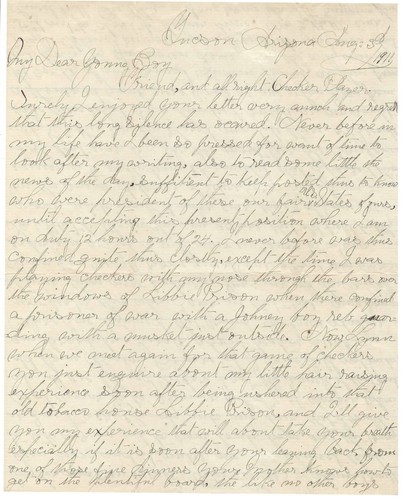 Tucson Arizona Aug: 3d
1910
My Dear Young Boy
Friend, and all right Checker Player.
Surely I enjoyed your letter very much and regret
that this long silence has occured. Never before in
my life have I been so pressed for want of time to
look after my writing, also to read some little the
news of the day, suffitient to keep posted, thus to know
who were president of these our fair States &
until accepting this present position where I am
on duty 12 hours out of 24. I never before was thus
confined quite thus closely, except the time I was
playing checkers with my nose through the bars over
the windows of Libbie Prison when there confined
a prisoner of war with a Johney boy reb
ding with a musket just outside. Now Lynn
when we meet again for that game of checkers
you just enquire about my little hair raising
experience soon after being ushered into that
old tobacco house Libbie Prison, and I'll give
you my experience that will about take your breath
especially if it is soon after your leaving back from
one of those fine dinners your Mother knows how to
get on the plentiful board, she like no other boys